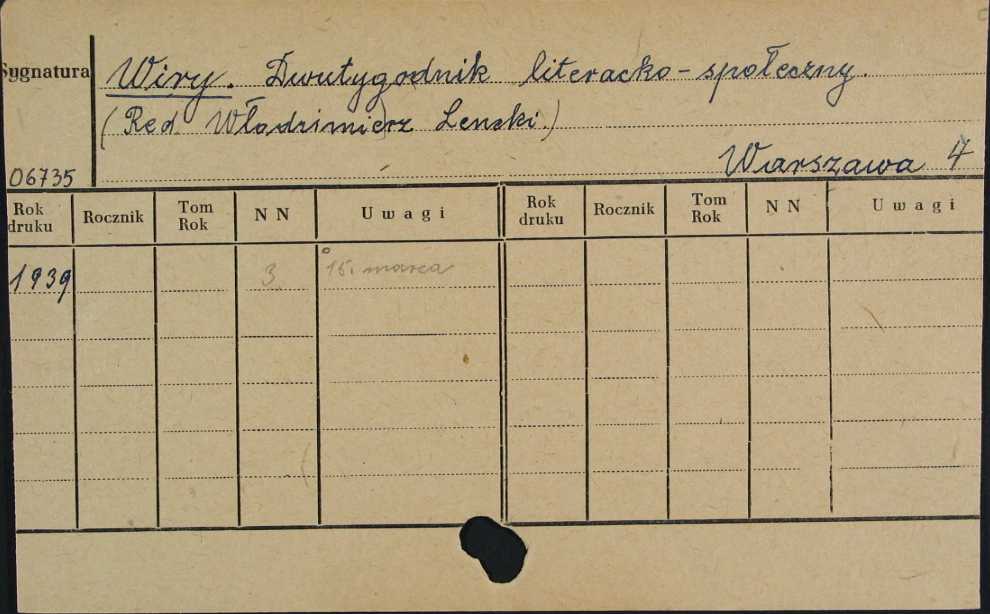 Sygnatura Wiry. Dwutygodnik literacko-społeczny.
(Red. Włodzimierz Lenski.)
06735 Warszawa 4
Rok druku Rocznik Tom Rok NN Uwagi Rok druku Rocznik Tom Rok NN Uwagi
1939 3 15. marca